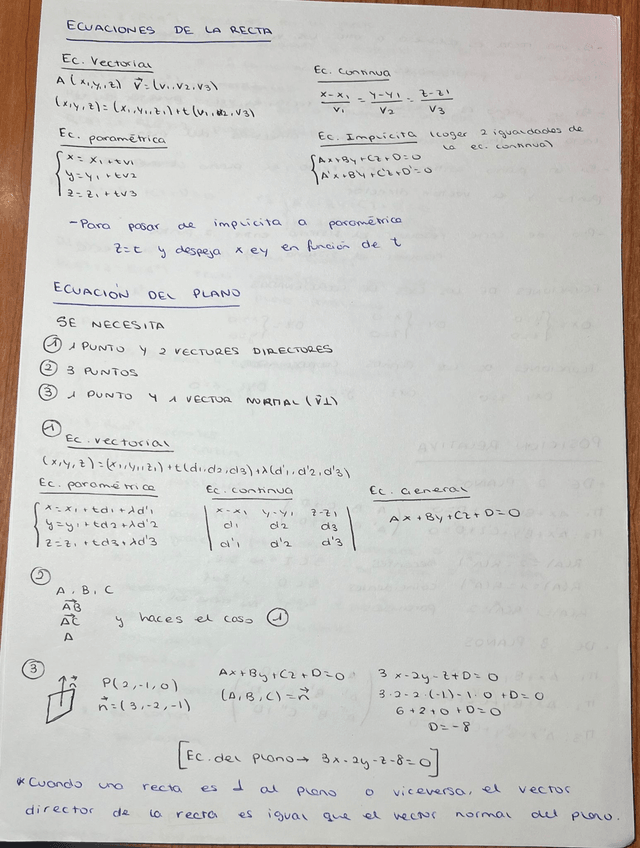 ECUACIONES DE LA RECTA
Ec. Vectorial
A (x,y,z) v⃗=(v1,v2,v3)
(x,y,z)=(x1,y1,z1)+t(v1,v2,v3)
Ec. continua
x-x1/v1 = y-y1/v2 = z-z1/v3
Ec. paramétrica
{x=x1+tv1
y=y1+tv2
z=z1+tv3
Ec. Implícita (coger 2 igualdades de
la ec. continua)
{Ax+By+Cz+D=0
A'x+B'y+C'z+D'=0
-Para pasar de implícita a paramétrica
z=t y despeja x e y en función de t
ECUACIÓN DEL PLANO
SE NECESITA
① 1 PUNTO Y 2 VECTORES DIRECTORES
② 3 PUNTOS
③ 1 PUNTO Y 1 VECTOR NORMAL (v⃗⊥)
① Ec. vectorial
(x,y,z)=(x1,y1,z1)+t(d1,d2,d3)+λ(d'1,d'2,d'3)
Ec. paramétrica
{x=x1+td1+λd'1
y=y1+td2+λd'2
z=z1+td3+λd'3
Ec. continua
| x-x1 y-y1 z-z1 |
| d1 d2 d3 |
| d'1 d'2 d'3 |
Ec. General
Ax+By+Cz+D=0
②
A, B, C
AB⃗
AC⃗ y haces el caso ①
A
③ n⃗
P(2,-1,0)
n⃗=(3,-2,-1)
Ax+By+Cz+D=0
(A,B,C)=n⃗
3x-2y-z+D=0
3·2-2·(-1)-1·0+D=0
6+2+0+D=0
D=-8
[Ec. del plano→ 3x-2y-z-8=0]
*Cuando una recta es ⊥ al plano o viceversa, el vector
director de la recta es igual que el vector normal del plano.